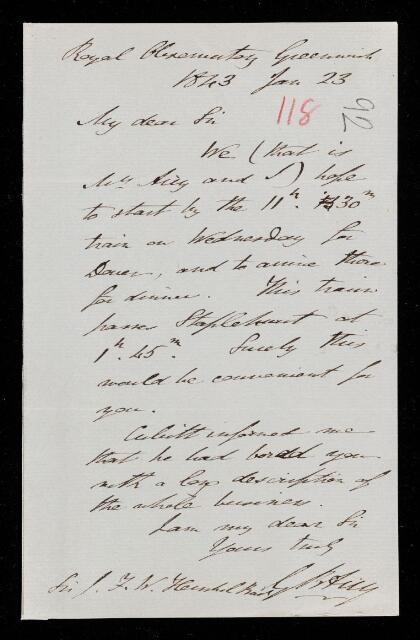 Royal Observatory Greenwich
1843 Jan 23
118
92
My dear Sir
We (that is
Mrs Airy and I) hope
to start by the 11h. 30m
train on Wednesday for
Dover, and to arrive there
for dinner. This train
passes Staplehurst at
1h. 45m. Surely this
would be convenient for
you.
Cubitt informed me
that he had bored you
with a long description of
the whole business.
I am my dear Sir
Yours truly
G B Airy
Sir J. F. W. Herschel Bart